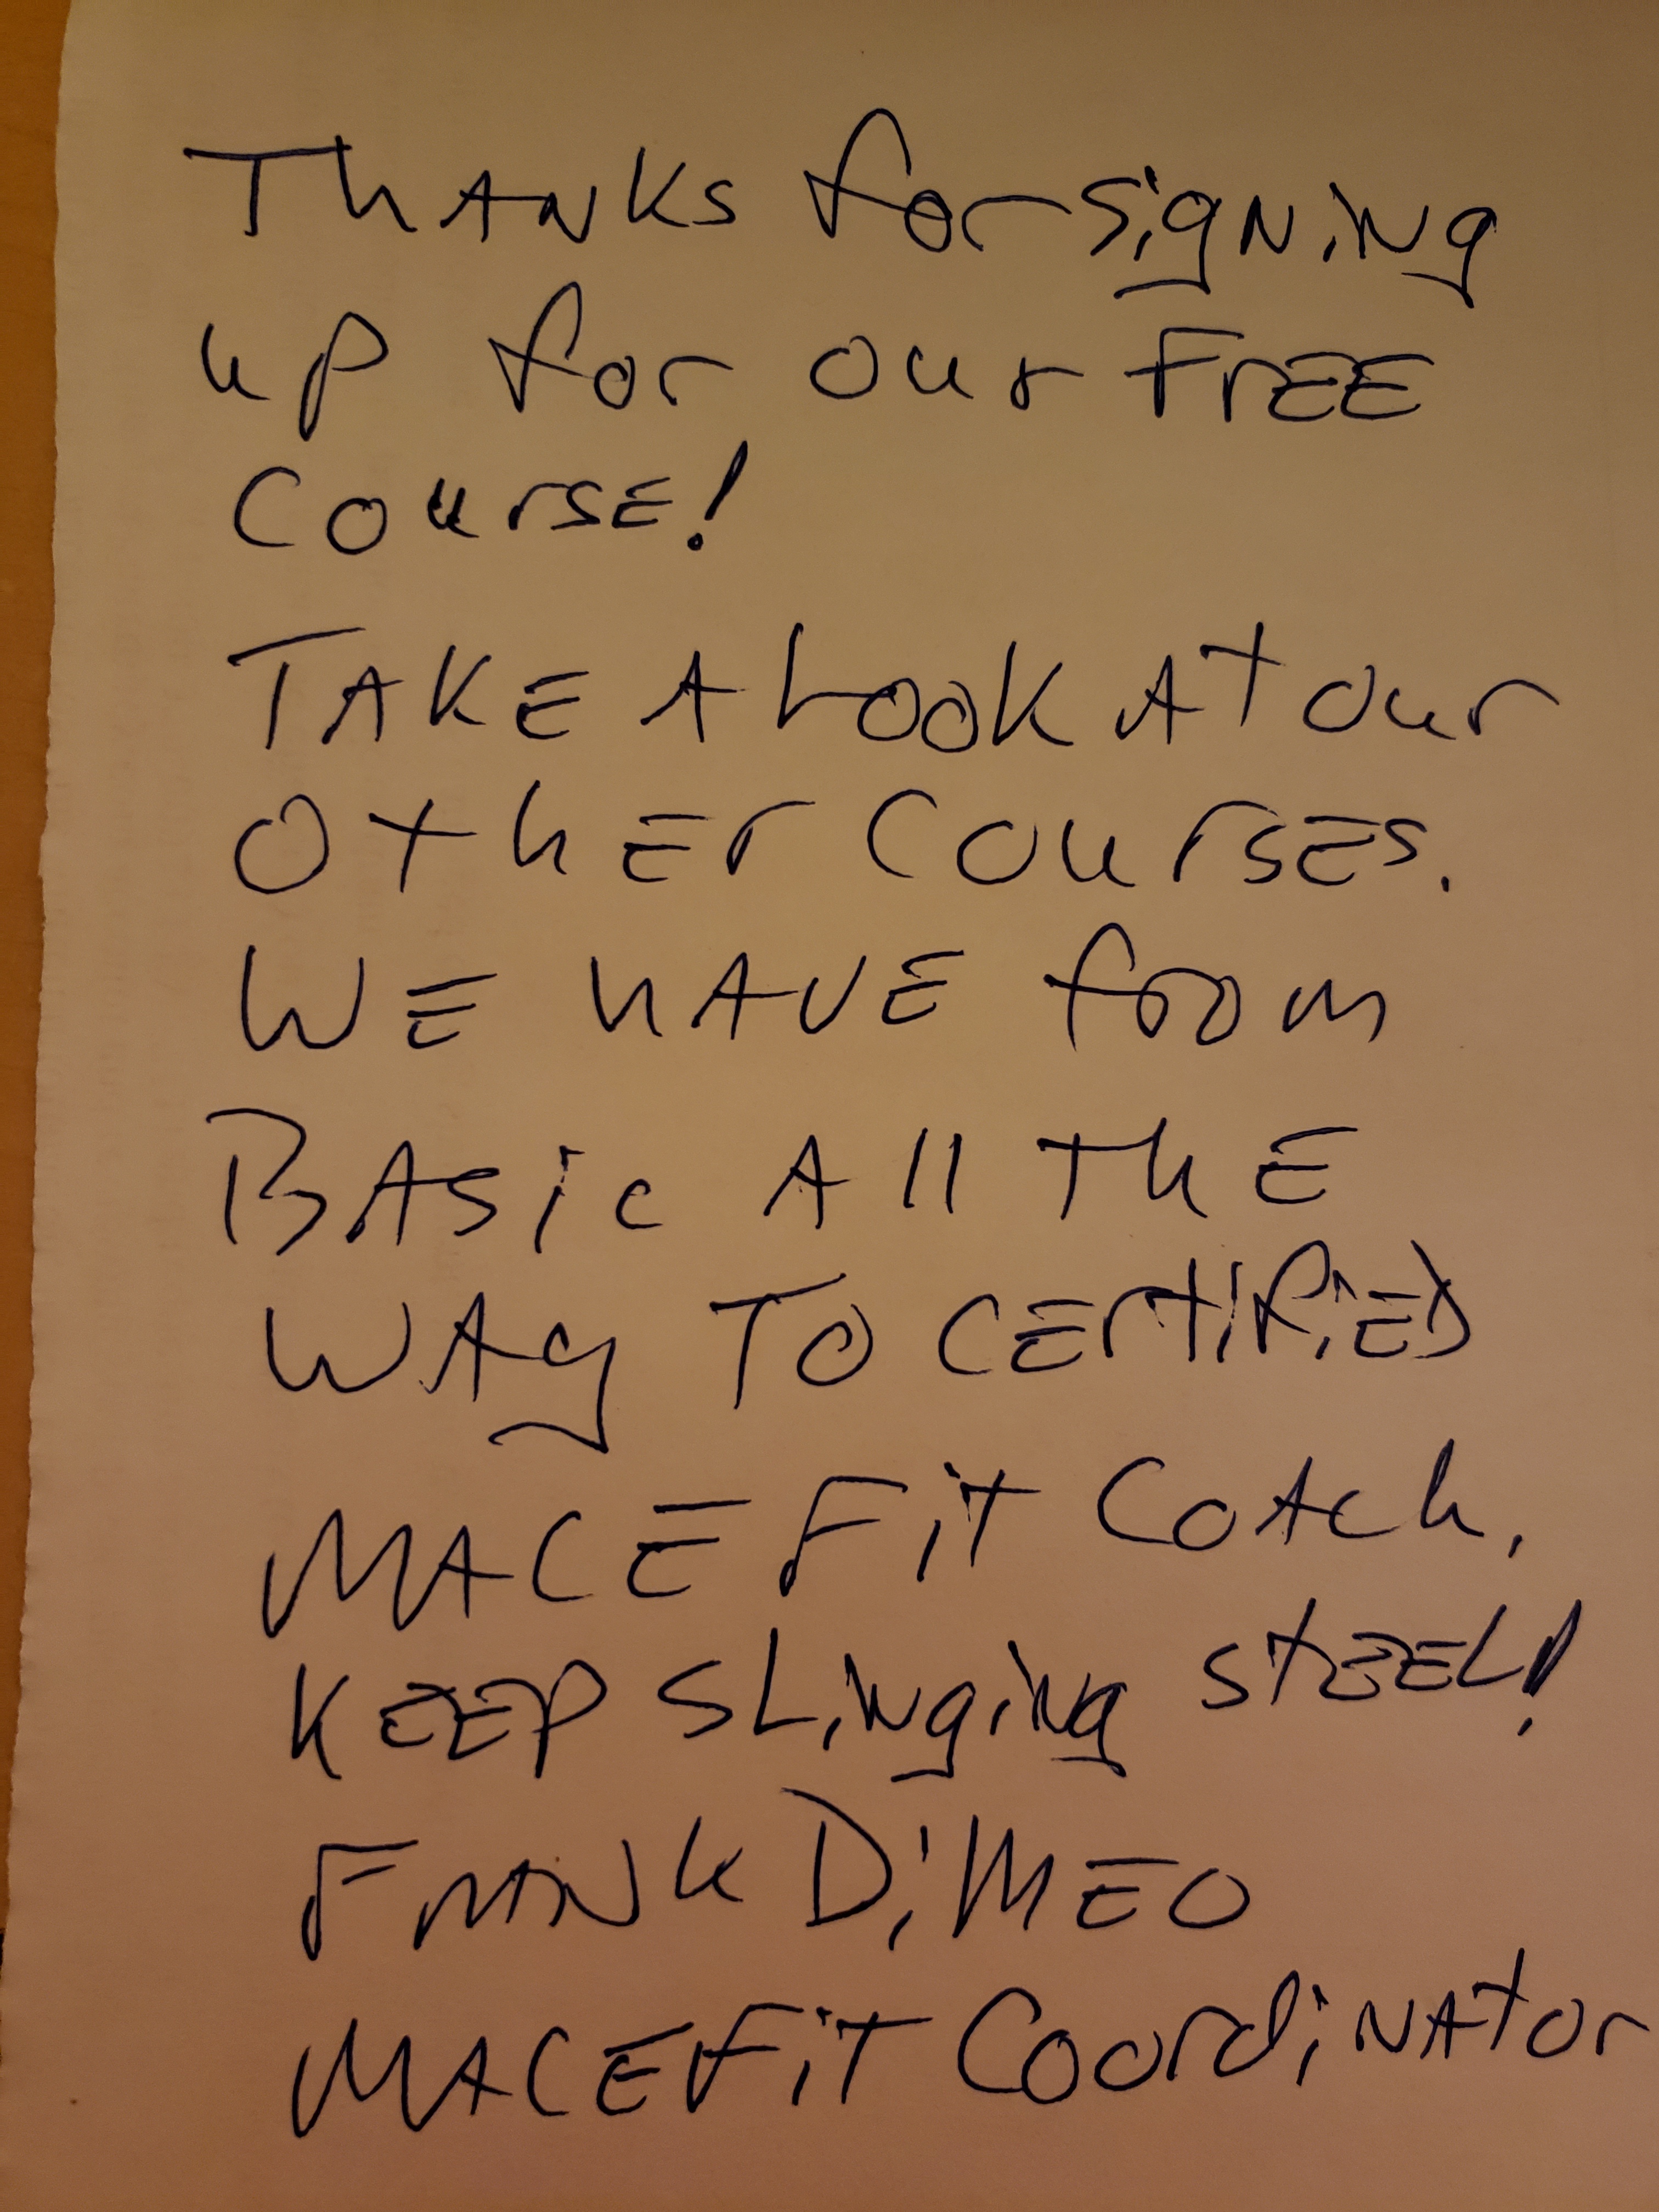 Thanks for signing
up for our Free
Course!
Take A Look At our
other courses.
We have from
Basic All the
way To certified
Mace Fit Coach.
Keep slinging steel!
Frank DiMeo
MaceFit Coordinator